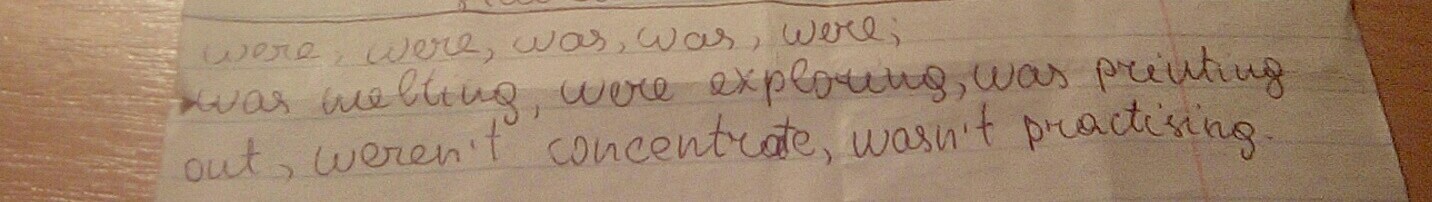 were, were, was, was, were;
was melting, were exploring, was printing
out, weren't concentrate, wasn't practising.